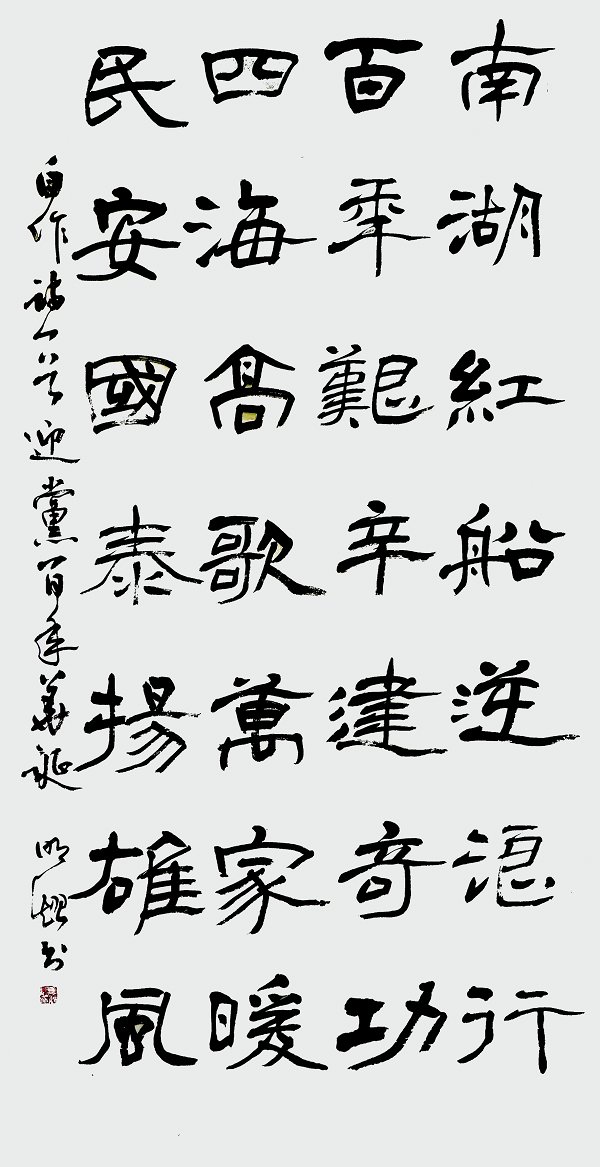 南湖紅船逆浪行
百年艱辛建奇功
四海高歌萬家暖
民安國泰揚雄風
自作詩一首迎黨百年華誕
明超书